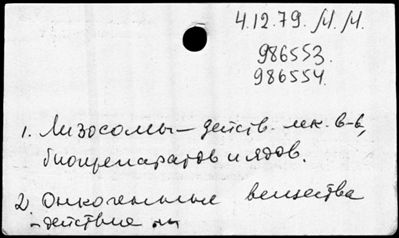 4.12.79. М.М.
986553.
986554.
1. Лизосомы – действ. лек. в-в,
биопрепаратов и ядов.
2. Онкогенные вещества
– действие